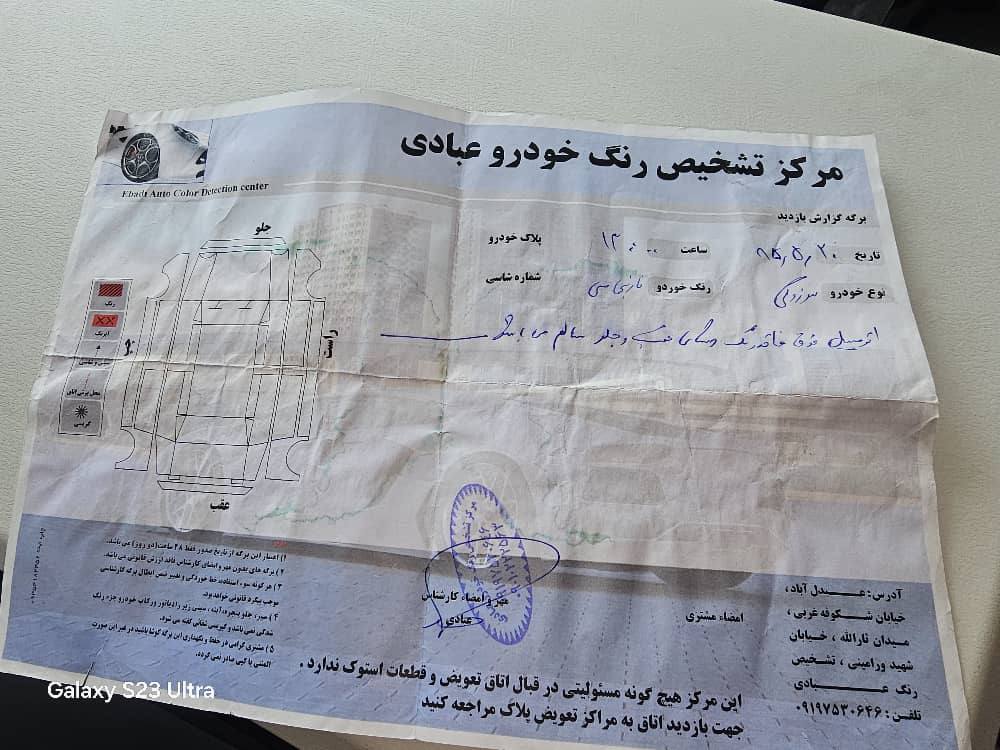 مرکز تشخیص رنگ خودرو عبادی
Ebadi Auto Color Detection center
برگه گزارش بازدید
تاریخ ۹۵,۵,۲۰ ساعت ۱۳:۰۰ پلاک خودرو
نوع خودرو سوزوکی رنگ خودرو نارنجی شماره شاسی
اتومبیل فوق فاقد رنگ و جلو سالم می باشد
جلو
راست
عقب
رنگ
محل برش اتاق
گریس
۱) اعتبار این برگه از تاریخ صدور فقط ۴۸ ساعت(دو روز) می باشد.
۲) برگه های بدون مهر و امضای کارشناس فاقد ارزش قانونی می باشد.
۳) هر گونه سوء استفاده، خط خوردگی و تغییر ضمن ابطال برگه کارشناسی
موجب پیگرد قانونی خواهد بود.
۴) سپر، جلو پنجره، آینه، سینی زیر رادیاتور و رکاب خودرو جزء رنگ
شدگی نمی باشد و گیریس شفاهی گفته می شود.
۵) مشتری گرامی در حفظ و نگهداری این برگه کوشا باشید در غیر این صورت
المثنی یا کپی صادر نمی گردد.
مهر و امضاء کارشناس
عبادی
امضاء مشتری
آدرس: عبدل آباد،
خیابان شکوفه غربی،
میدان ثارالله، خیابان
شهید ورامینی، تشخیص
رنگ عبادی
تلفن: ۰۹۱۹۷۵۳۰۶۴۶
این مرکز هیچ گونه مسئولیتی در قبال اتاق تعویض و قطعات استوک ندارد.
جهت بازدید اتاق به مراکز تعویض پلاک مراجعه کنید
Galaxy S23 Ultra